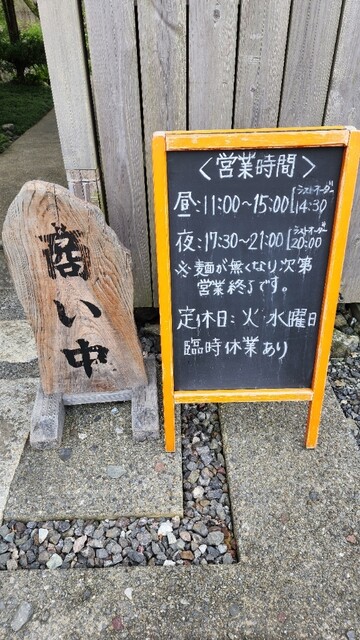 商い中
〈営業時間〉
昼:11:00〜15:00[ラストオーダー 14:30
夜:17:30〜21:00[ラストオーダー 20:00
※麺が無くなり次第
営業終了です。
定休日:火・水曜日
臨時休業あり